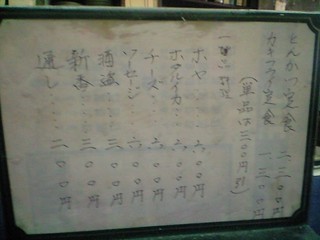 とんかつ定食
カキフライ定食 一、三〇〇円
(単品は三〇〇円引)
一品料理
ホヤ・・・・・六〇〇円
ホタルイカ・・・六〇〇円
チーズ・・・・六〇〇円
ソーセージ・・・六〇〇円
酒盗・・・・三〇〇円
新香・・・・三〇〇円
通し・・・・三〇〇円